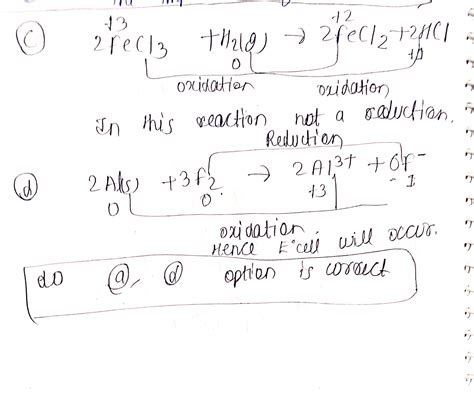 +3 +2
(C) 2FeCl3 + H2(g) → 2FeCl2 + 2HCl
0 +1
oxidation oxidation
In this reaction not a reduction.
Reduction
(d) 2Al(s) + 3F2 → 2Al3+ + 6F-
0 0 +3 -1
oxidation.
Hence E°cell will occur.
so (a), (d) option is correct